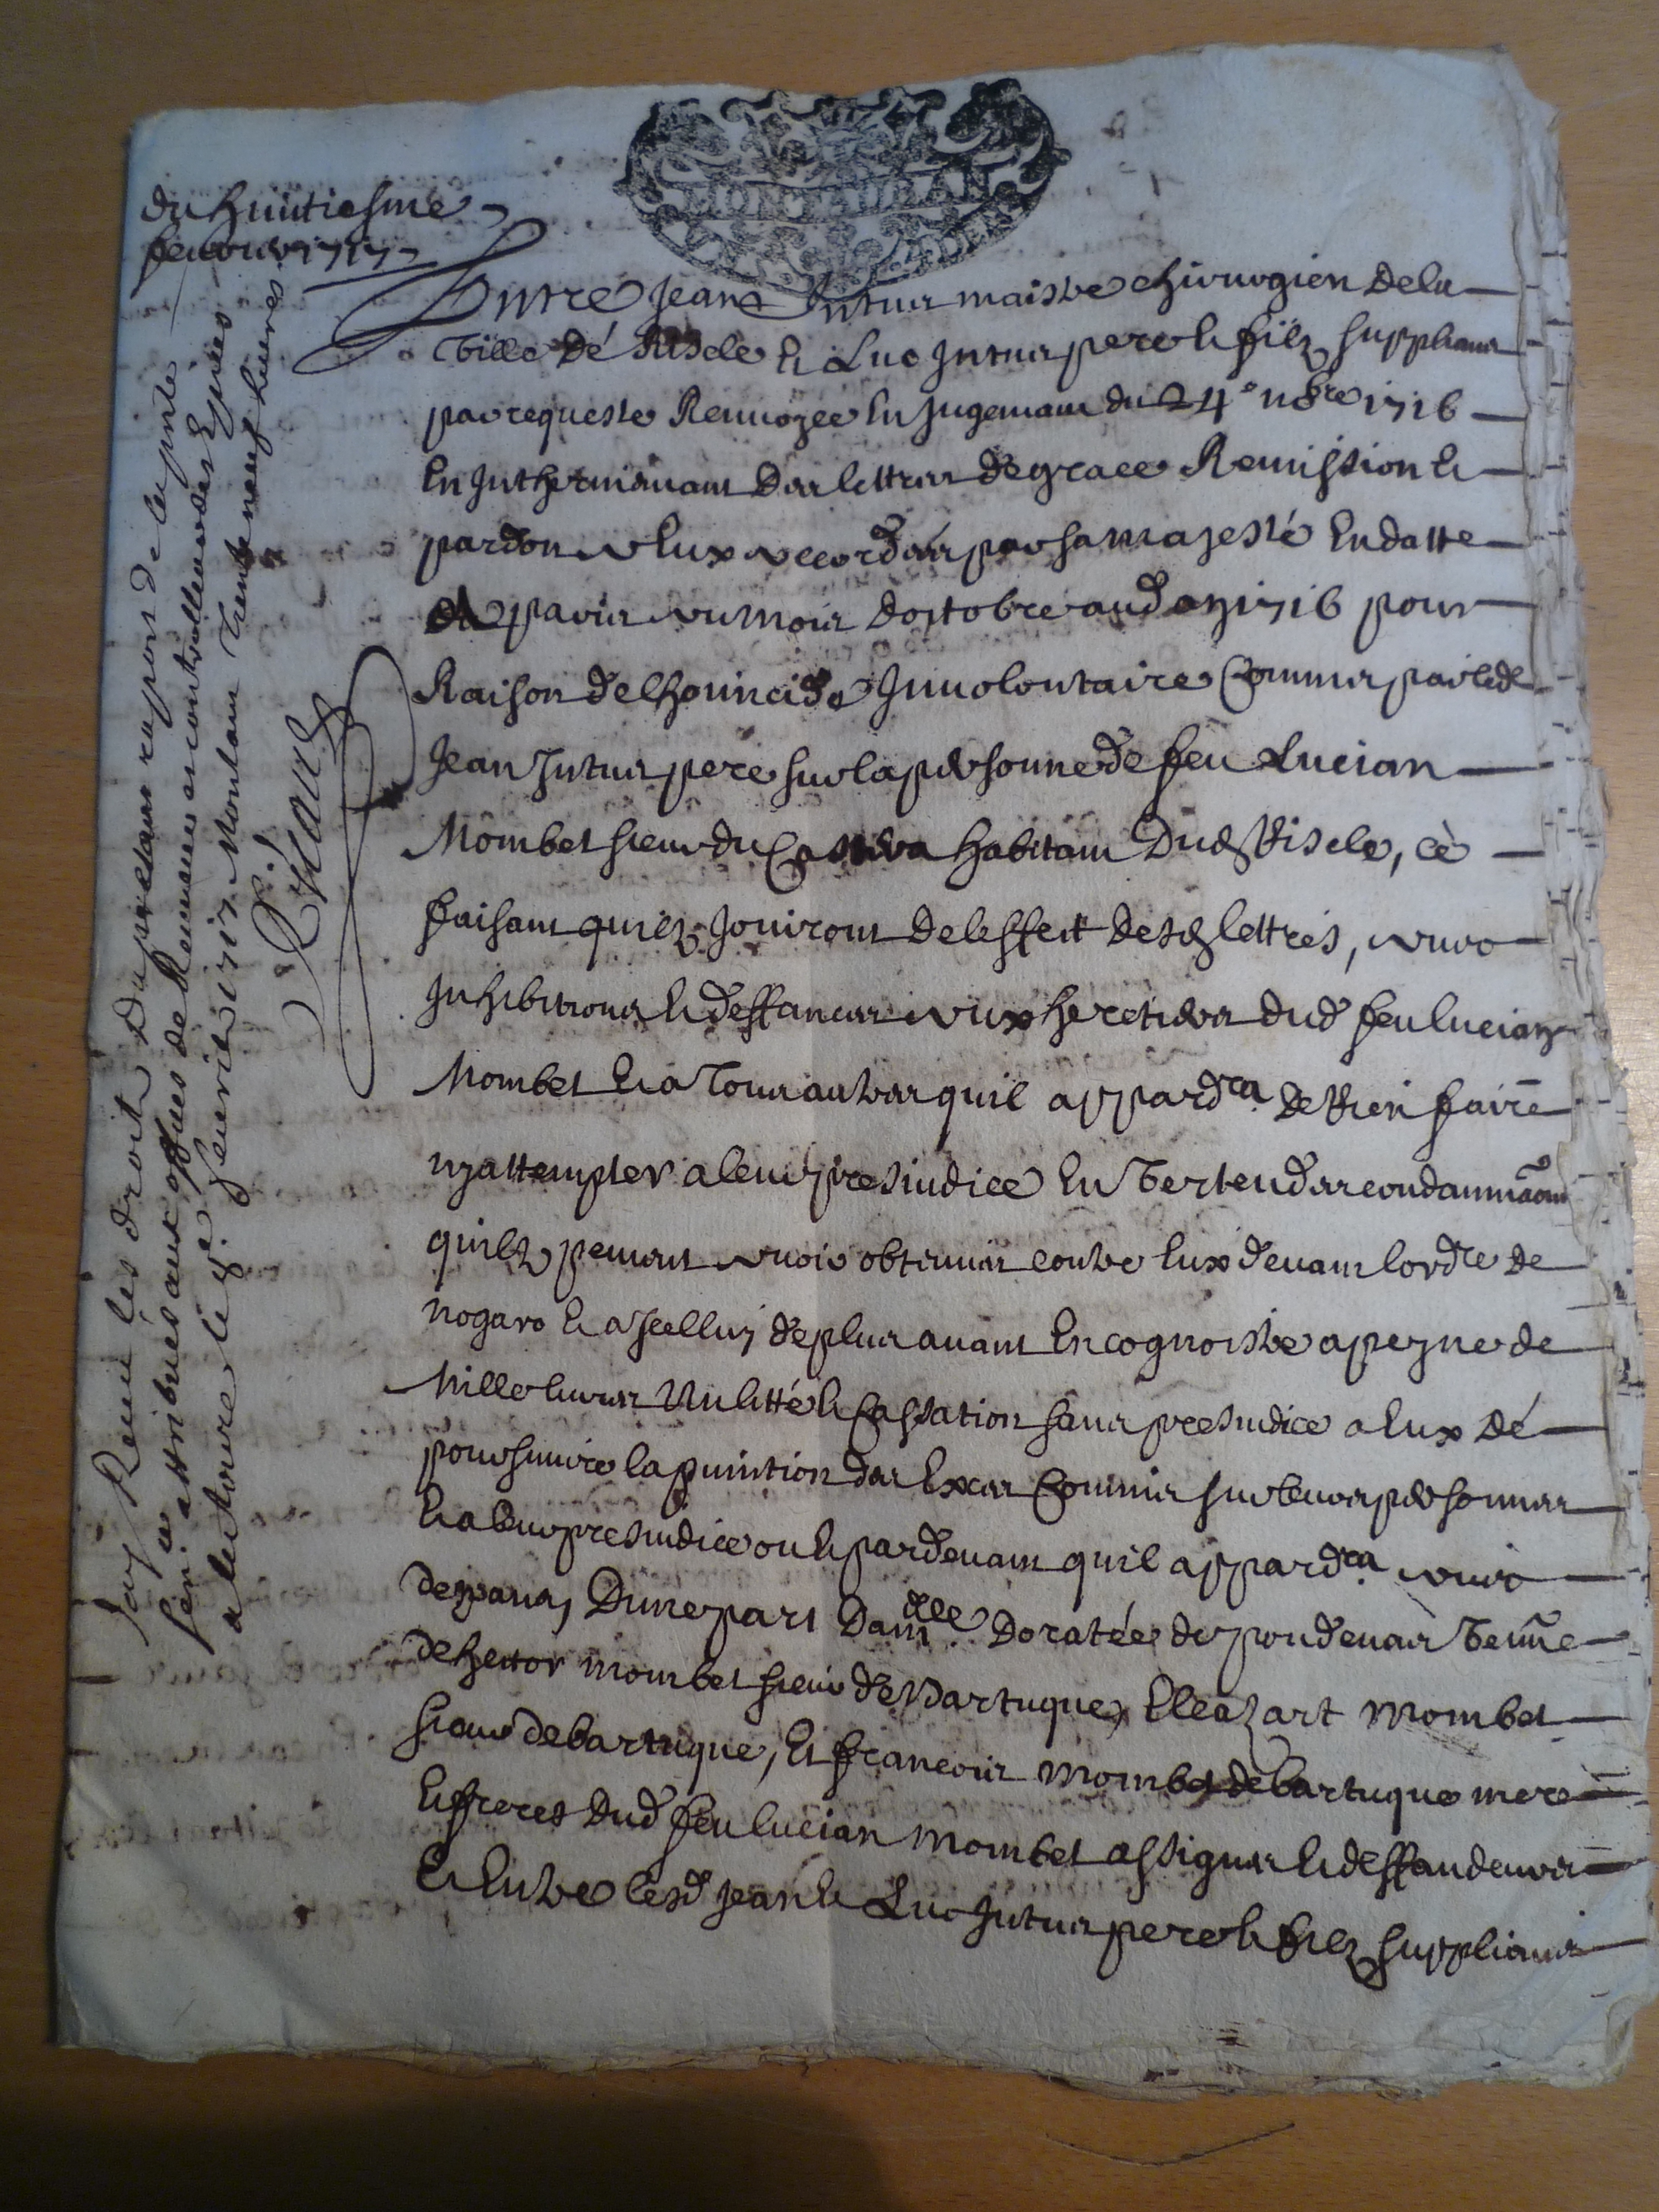 du huitiesme
feuvrier 1717
MONTAUBAN
Entre Jean Intus maistre chirurgien de la
Ville de Riscle et Luc Intus pere et filz supplians
par requeste Renvoyee en jugemant du 24e 9bre 1716
en intherinamant des lettres de grace Remission et
pardon a eux accordées par sa majesté en datte
de paris au mois doctobre aud an 1716 pour
Raison de lhomicide Involontaire Commis par led
Jean Intus pere sur la personne de feu Lucian
Mombet sieur du habitant Dud Riscle, cè
faisant quilz jouiront de leffect desd lettres, avec
Inhibitions et deffances aux heretiers dud feu lucian
Mombet et a Tous autres quil appardra de Rien faire
ny attempter a leur presiudice en Vertu des condamnaons
quilz peuvent avoir obtenues contre eux devant lordre de
nogaro et a Icelluy de plus avant en cognoistre a peyne de
Mille livres Nulitté et Cassation sans presiudice a eux dé
poursuivre la punition des Exces Commis sur leurs personnes
et a leur presiudice ou et pardevant quil appardra avec
depans, Dune part Damlle Doratée de poudenas Veuve
de hector mombet sieur de Bartuque, Eleazart Mombet
sieur de bartuque, Et francois Mombet de bartuque mere
et freres dud feu lucian mombet assignes et deffandeurs
et Entre lesd jean et Luc Intus pere et filz supplians
Jay Receu les droits du presant raport de la pnte
attribués aux offices de Receveurs et controlleurs des Epices
a lectoure le 8e fevrier 1717 Montant Trente neuf livres